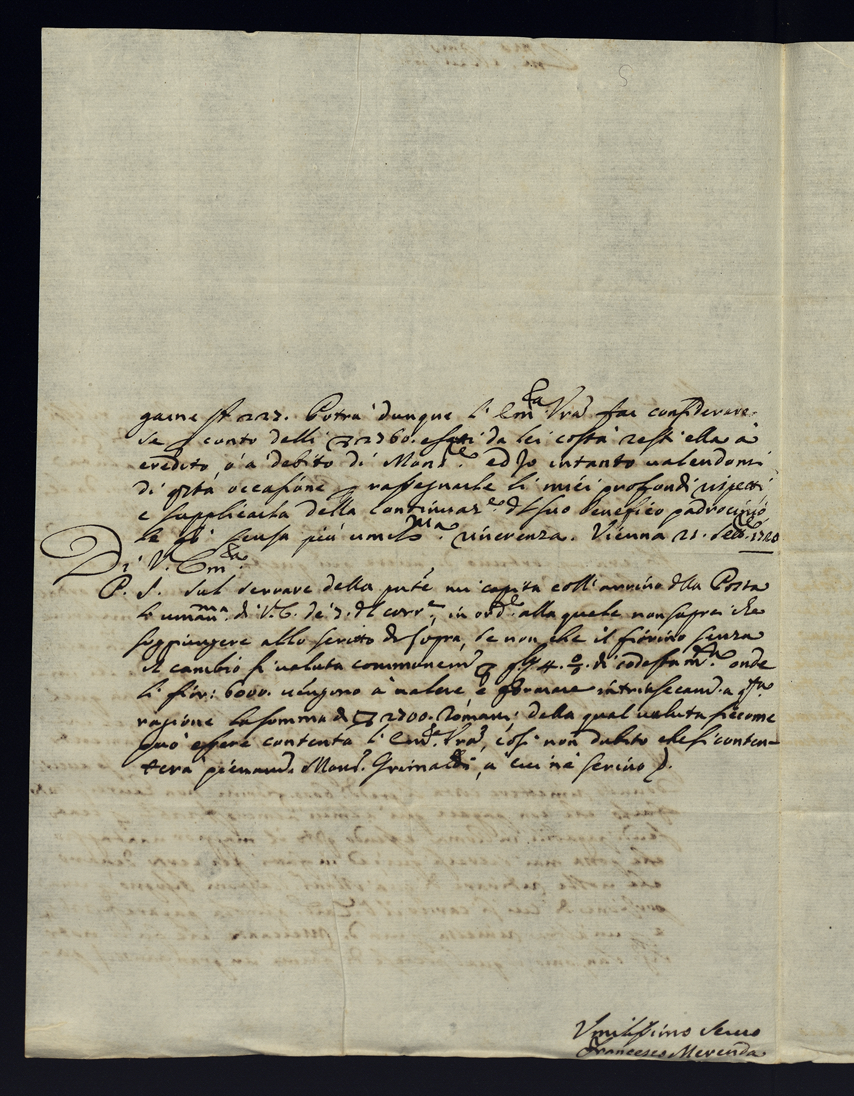 Potrà dunque l'Em.za Vra far considerare
se conto delli 2760. da lei costà resti ella à
credito, o à debito di Mons.re ed Io intanto valendomi
di qsta occasione rassegnarle li miei profondi rispetti
e supplicarla della continuaz.e del suo benefico padrocinio
le fò senza più umil.ma riverenza. Vienna 21. 1720
Di V. Em.za
P. S. Sul serrare della pnte mi capita coll'arrivo della Posta
di V. E. de' 7. del corr.e, in ord.e alla quale non saprei che
soggiungere allo scritto di sopra, se non che il fiorino senza
il cambio si valuta communem.te onde
li fior: 6000. vengono à valere e formare intrinsecam.te a qsta
ragione la somma di 2700. Romani; della qual valuta siccome
può essere contenta l'Em.za Vra, così non dubito che si conten-
terà pienam.te Mons.r Grimaldi, a cui ne scrivo).
Umilissimo Servo
Francesco Merenda